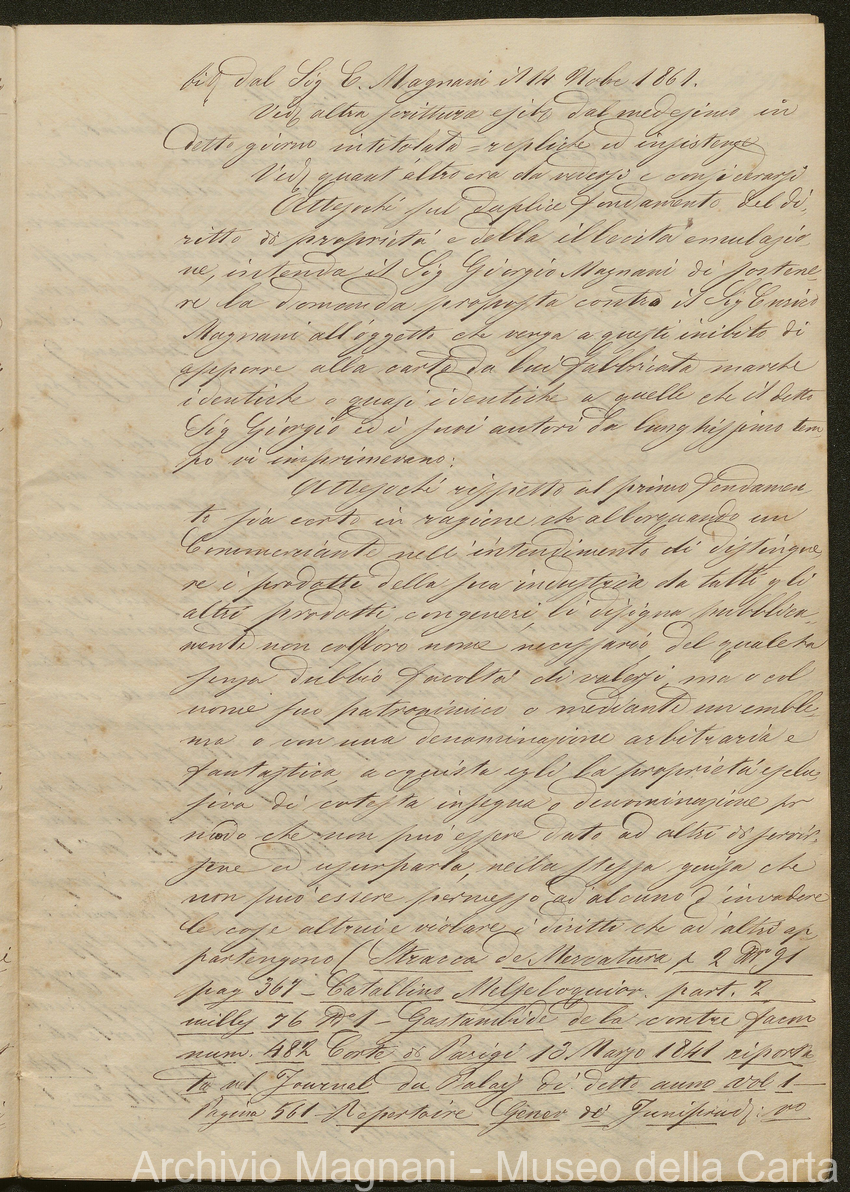 bit dal Sig E. Magnani il 14 Nobe 1861.
Ved altra scrittura esib dal medesimo in
detto giorno intitolata = repliche ed insistenze
Ved quant'altro era da vedersi e considerarsi
Attesoché sul duplice fondamento del di,
ritto di proprietà e della illecita emulazio
ne, intenda il Sig Giorgio Magnani di sostene
re la domanda proposta contro il Sig Enrico
Magnani all'oggetto che venga a questi inibito di
apporre alla carta da lui fabbricata marche
identiche o quasi identiche a quelle che il detto
Sig Giorgio ed i suoi autori da lunghissimo tem
po vi imprimevano:
Attesoché rispetto al primo fondamen
to sia certo in ragione che allorquando un
Commerciante nell'intendimento di distingue
re i prodotti della sua industria da tutti gli
altri prodotti congeneri, li disegna pubblica,
mente non col loro nome necessario del quale ha
senza dubbio facoltà di valersi, ma o col
nome suo patronimico o mediante un emble,
ma o con una denominazione arbitraria e
fantastica, acquista egli la proprietà esclu,
siva di cotesta insegna o denominazione pr
modo che non può essere dato ad altri di servir,
sene od usurparla, nella stessa guisa che
non può essere permesso ad alcuno d'invadere
le cose altrui e violare i diritti che ad altri ap
partengono (Stracca de Mercatura p 2 Nr 91
pag 367 - part. 2
76 Nr 1 - Gastambide de la contre facon
num. 482 Corte di Parigi 13 Marzo 1841 riporta
ta nel Journal du Palais di detto anno vol 1
Pagina 561 - Repertoire Gener de Jurisprud: vo
Archivio Magnani - Museo della Carta